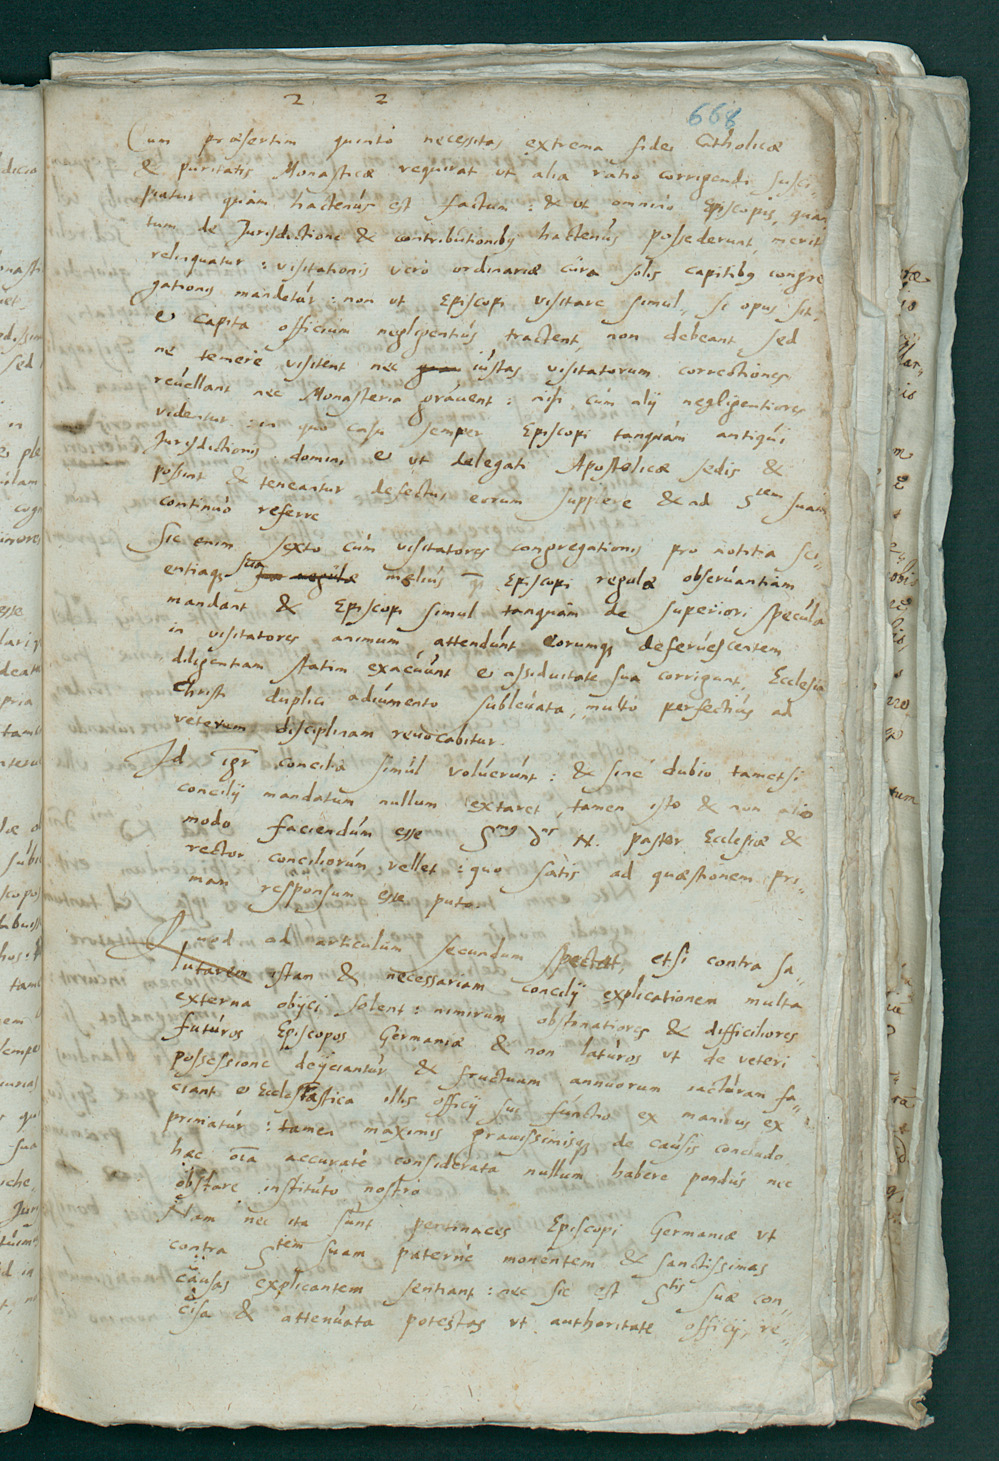 2 2
668
Cum præsertim quinto necessitas extrema fidei Catholicæ
& puritatis Monasticæ requirat ut alia ratio corrigendi susci,,
piatur quàm hactenùs est factum : & ut omnino Episcopis, quan
tum de Jurisdictione & contributionibꝰ hactenùs possederunt, merit
relinquatur : visitationis verò ordinariæ cùra solis capitibꝰ congre
gationis mandetùr : non ut Episcopi visitare simul, si opus sit,
et Capita officium negligentiùs tractent, non debeant, sed
ne temerè visitent nec iùstas visitatorum correctiones
revellant nec Monasteria gràuent : nisi cùm alij negligentiores
videntur : in quo casu semper Episcopi tanquàm antiqùi
Jurisdictionis domini et ut delegati Apostolicæ sedis &
possint & teneantur defectus eorum supplere & ad Stem suam
continuò referre
Sic enim sexto cùm visitatores congregationis pro notitia sci,,
entiaqꝫ sua melius qm Episcopi regulæ obserùantiam
mandant & Episcopi simul tanquàm de superiori specùla
in visitatores animum attendùnt eorumqꝫ deferùescentem
diligentiam statim exacùùnt et assiduitate sua corrigunt, Ecclesia
Christi duplici adiùmento sublevata, multo perfectiùs ad
veterum disciplinam revocabitur.
Id igr concilia simùl volùerùnt : & sinè dubio tametsi
concilij mandatum nullum extaret, tamen isto & non alio
modo faciendùm esse Smꝰ Dnꝰ N. pastor Ecclesiæ &
rector conciliorùm vellet : quo satis ad quæstionem pri,,
mam responsum esse puto.
Quod ad articulùm secundum spectat, etsi contra sa,,
lutarem istan & necessariam concilij explicationem multa
externa obijci solent : nimirum obstinatiores & difficiliores
futùros Episcopos Germaniæ & non latùros ut de veteri
possessione deijciantùr & fructuum annuorum iactùran fa,,
ciant et Ecclesiastica illis officij sui fùnctio ex manibus ex
primatùr : tamen maximis gravissimisqꝫ de caùsis concludo
hæc oĩa accuratè considerata nullum habere pondùs nec
obstare institùto nostro
Nam nec ita sùnt pertinaces Episcopi Germaniæ ut
contra Stem suam paternè monentem & sanctissimas
caùsas explicantem sentiant : nec sic est Stis suæ con,,
cisa & attenùata potestas ut authoritate officij re,,